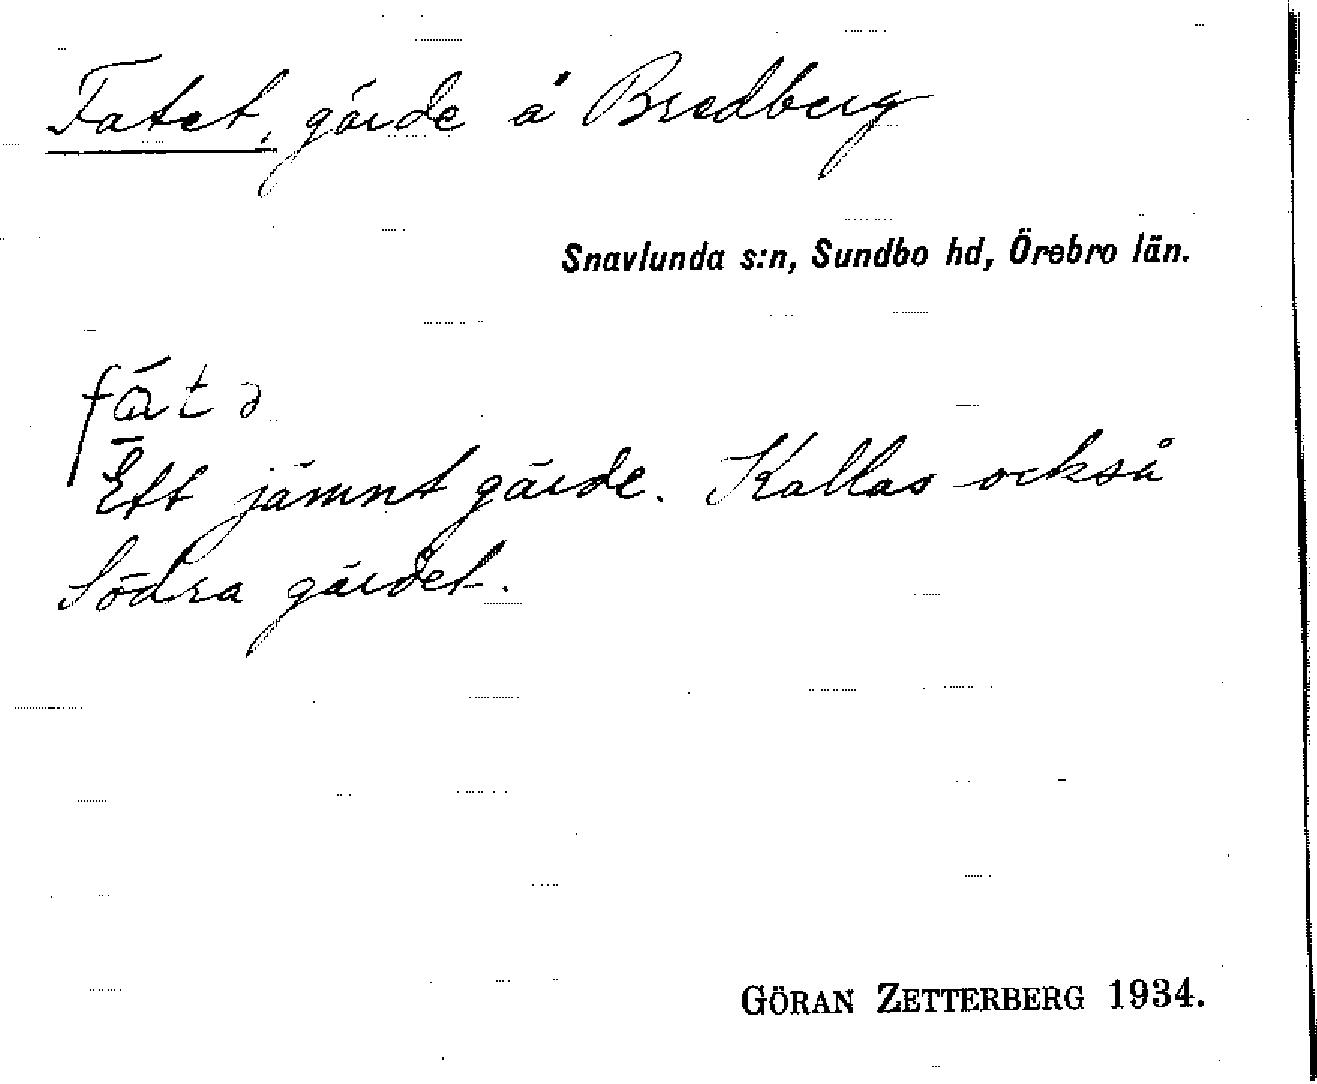 Fatet, gärde å Bredberg
Snavlunda s:n, Sundbo hd, Örebro län.
fá̱tə
Ett jämnt gärde. Kallas också
Södra gärdet.
GÖRAN ZETTERBERG 1934.